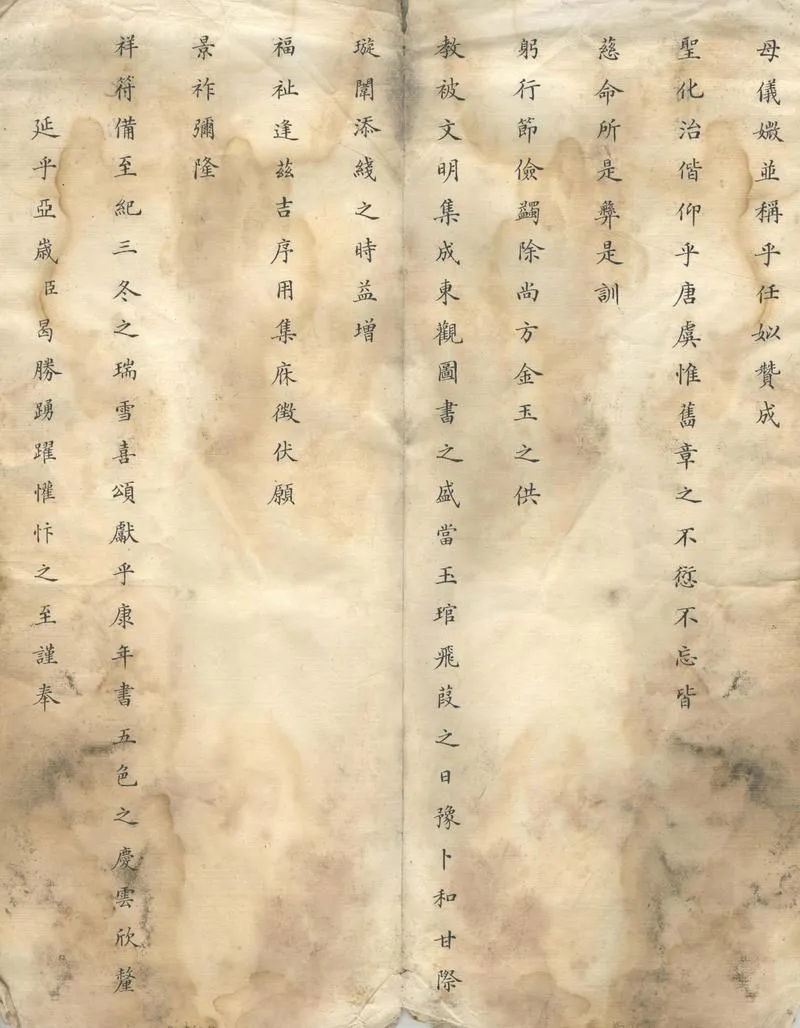 母儀媺並稱乎任姒贊成
聖化治偕仰乎唐虞惟舊章之不愆不忘皆
慈命所是彝是訓
躬行節儉蠲除尚方金玉之供
教被文明集成東觀圖書之盛當玉琯飛葭之日豫卜和甘際
璇闈添綫之時益增
福祉逢茲吉序用集庥徵伏願
景祚彌隆
祥符備至紀三冬之瑞雪喜頌獻乎康年書五色之慶雲欣釐
延乎亞歲臣曷勝踴躍懽忭之至謹奉